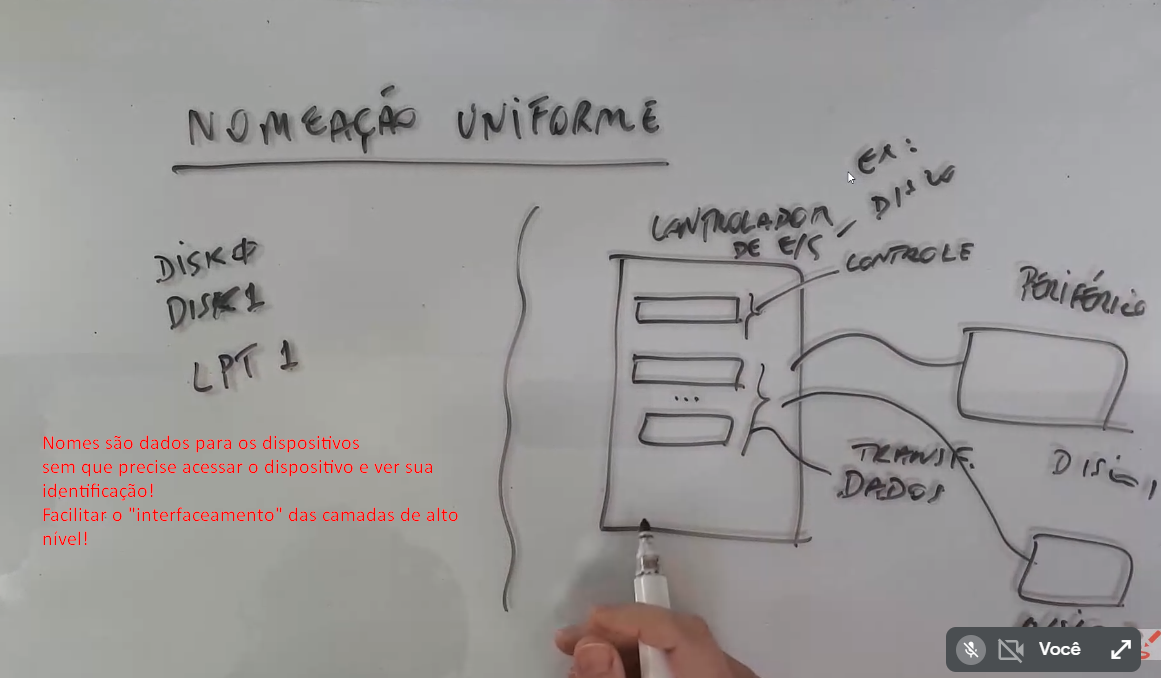 NOMEAÇÃO UNIFORME
DISK 0
DISK 1
LPT 1
Nomes são dados para os dispositivos
sem que precise acessar o dispositivo e ver sua
identificação!
Facilitar o "interfaceamento" das camadas de alto
nível!
EX:
DISCO
CONTROLADOR
DE E/S
CONTROLE
PERIFÉRICO
...
TRANSF.
DADOS
Você